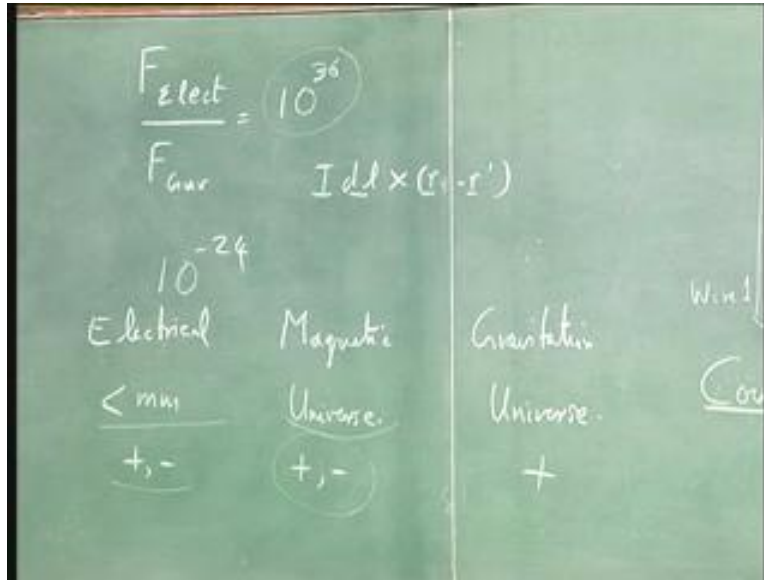 F Elect
= 10^36
F Grav
I dl × (r, -r')
10^-24
Electrical Magnetic Gravitation
< mm Universe. Universe.
+,- +,- +
Wire 1
Cou